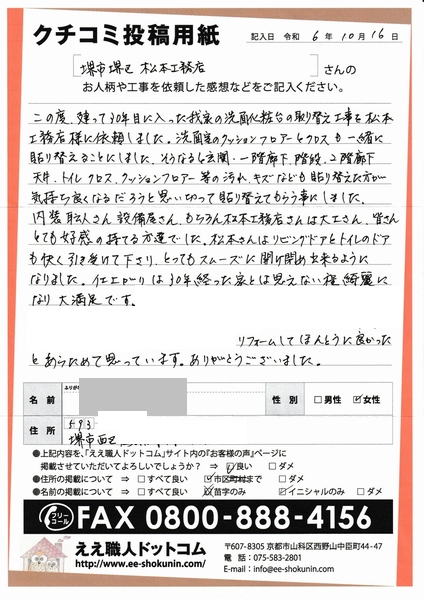 クチコミ投稿用紙
記入日 令和 6 年 10 月 16 日
[堺市堺区 松本工務店] さんの
お人柄や工事を依頼した感想などをご記入ください。
この度、建って30年目に入った我家の洗面化粧台の取り替え工事を松本
工務店様に依頼しました。洗面室のクッションフロアーとクロスも一緒に
貼り替えることにしました。そうなると玄関・一階廊下、階段、2階廊下
天井、トイレ クロス、クッションフロアー 等の汚れ、キズなども貼り替えた方が
気持ち良くなるだろうと思い切って貼り替えてもらう事にしました。
内装職人さん、設備屋さん、もちろん松本工務店さんは大工さん、皆さん
とても好感の持てる方達でした。松本さんはリビングドアとトイレのドア
も快く引き受けて下さり、とってもスムーズに開け閉め出来るように
なりました。仕上がりは30年経った家とは思えない程 綺麗に
なり大満足です。
リフォームしてほんとうに良かった
とあらためて思っています。ありがとうございました。
ふりがな
名前
性別 □男性 ☑女性
住所
593
堺市西区
●上記内容を、「ええ職人ドットコム」サイト内の『お客様の声』ページに
掲載させていただいてよろしいでしょうか? ⇒ ☑良い □ダメ
●住所の掲載について ⇒ □すべて良い ☑市区町村まで □ダメ
●名前の掲載について ⇒ □すべて良い ☑苗字のみ ☑イニシャルのみ □ダメ
フリーコール FAX 0800-888-4156
ええ職人ドットコム
http://www.ee-shokunin.com/
〒607-8305 京都市山科区西野山中臣町44-47
電話：075-583-2801
E-mail：info@ee-shokunin.com